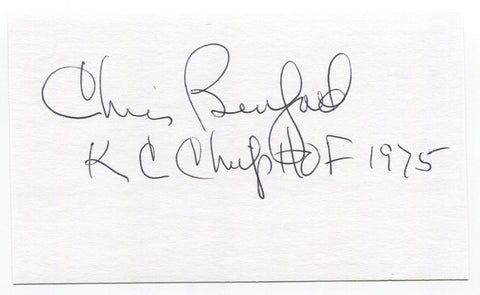 Chris Burford
K C Chiefs HOF 1975